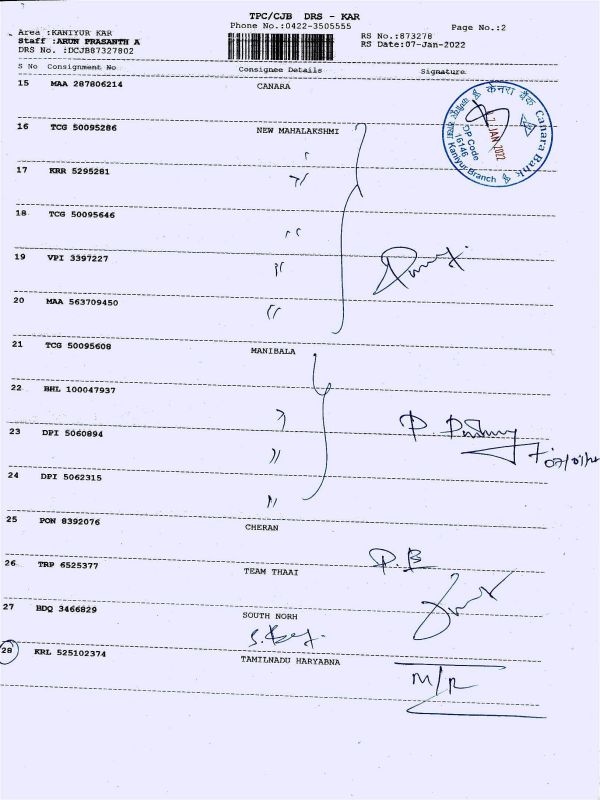 TPC/CJB DRS - KAR
Phone No.:0422-3505555
Page No.:2
Area :KANIYUR KAR
Staff :ARUN PRASANTH A
DRS No. :DCJB87327802
RS No.:873278
RS Date:07-Jan-2022
S No Consignment No Consignee Details Signature
15 MAA 287806214 CANARA
केनरा बैंक Canara Bank
7 JAN 2022
DP Code
16146
Kaniyur Branch
16 TCG 50095286 NEW MAHALAKSHMI
17 KRR 5295281 "
18 TCG 50095646 "
19 VPI 3397227 "
20 MAA 563709450 "
21 TCG 50095608 MANIBALA
22 BHL 100047937
23 DPI 5060894 "
24 DPI 5062315 "
25 PON 8392076 CHERAN
26 TRP 6525377 TEAM THAAI
P.B
27 BDQ 3466829 SOUTH NORH
28 KRL 525102374 TAMILNADU HARYABNA
M/R